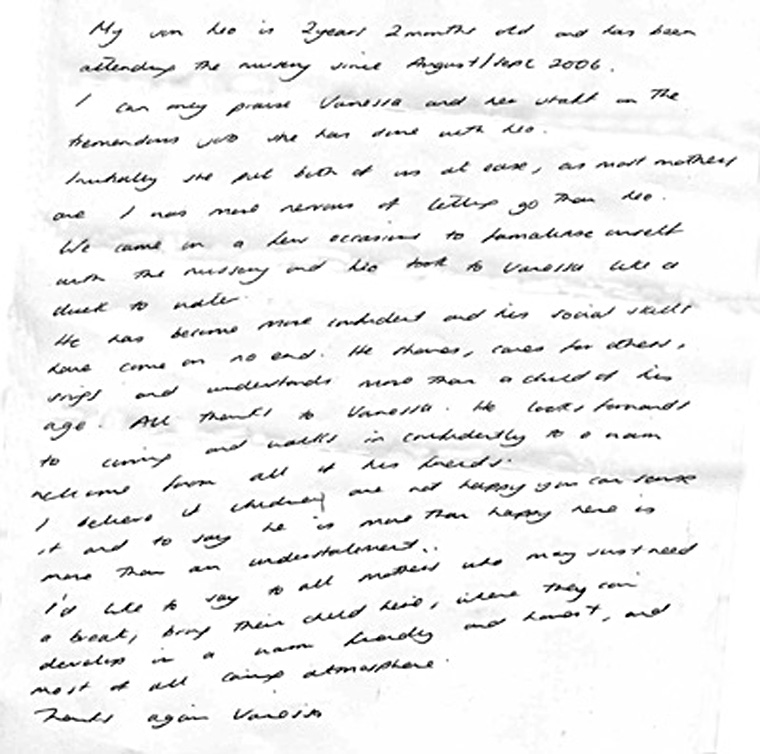 My son Leo is 2years 2months old and has been
attending the nursery since August/Sept 2006.
I can only praise Vanessa and her staff on the
tremendous job she has done with Leo.
Initially she put both of us at ease, as most mothers
are I was more nervous of letting go than Leo.
We came in a few occasions to familiarise myself
with the nursery and Leo took to Vanessa like a
duck to water.
He has become more confident and his social skills
have come on no end. He shares, cares for others,
sings and understands more than a child of his
age. All thanks to Vanessa. He looks forwards
to coming and walks in confidently to a warm
welcome from all of his friends.
I believe if children are not happy you can sense
it and to say he is more than happy here is
more than an understatement..
I'd like to say to all mothers who may just need
a break, bring their child here, where they can
develop in a warm friendly and honest, and
most of all caring atmosphere.
Thanks again Vanessa